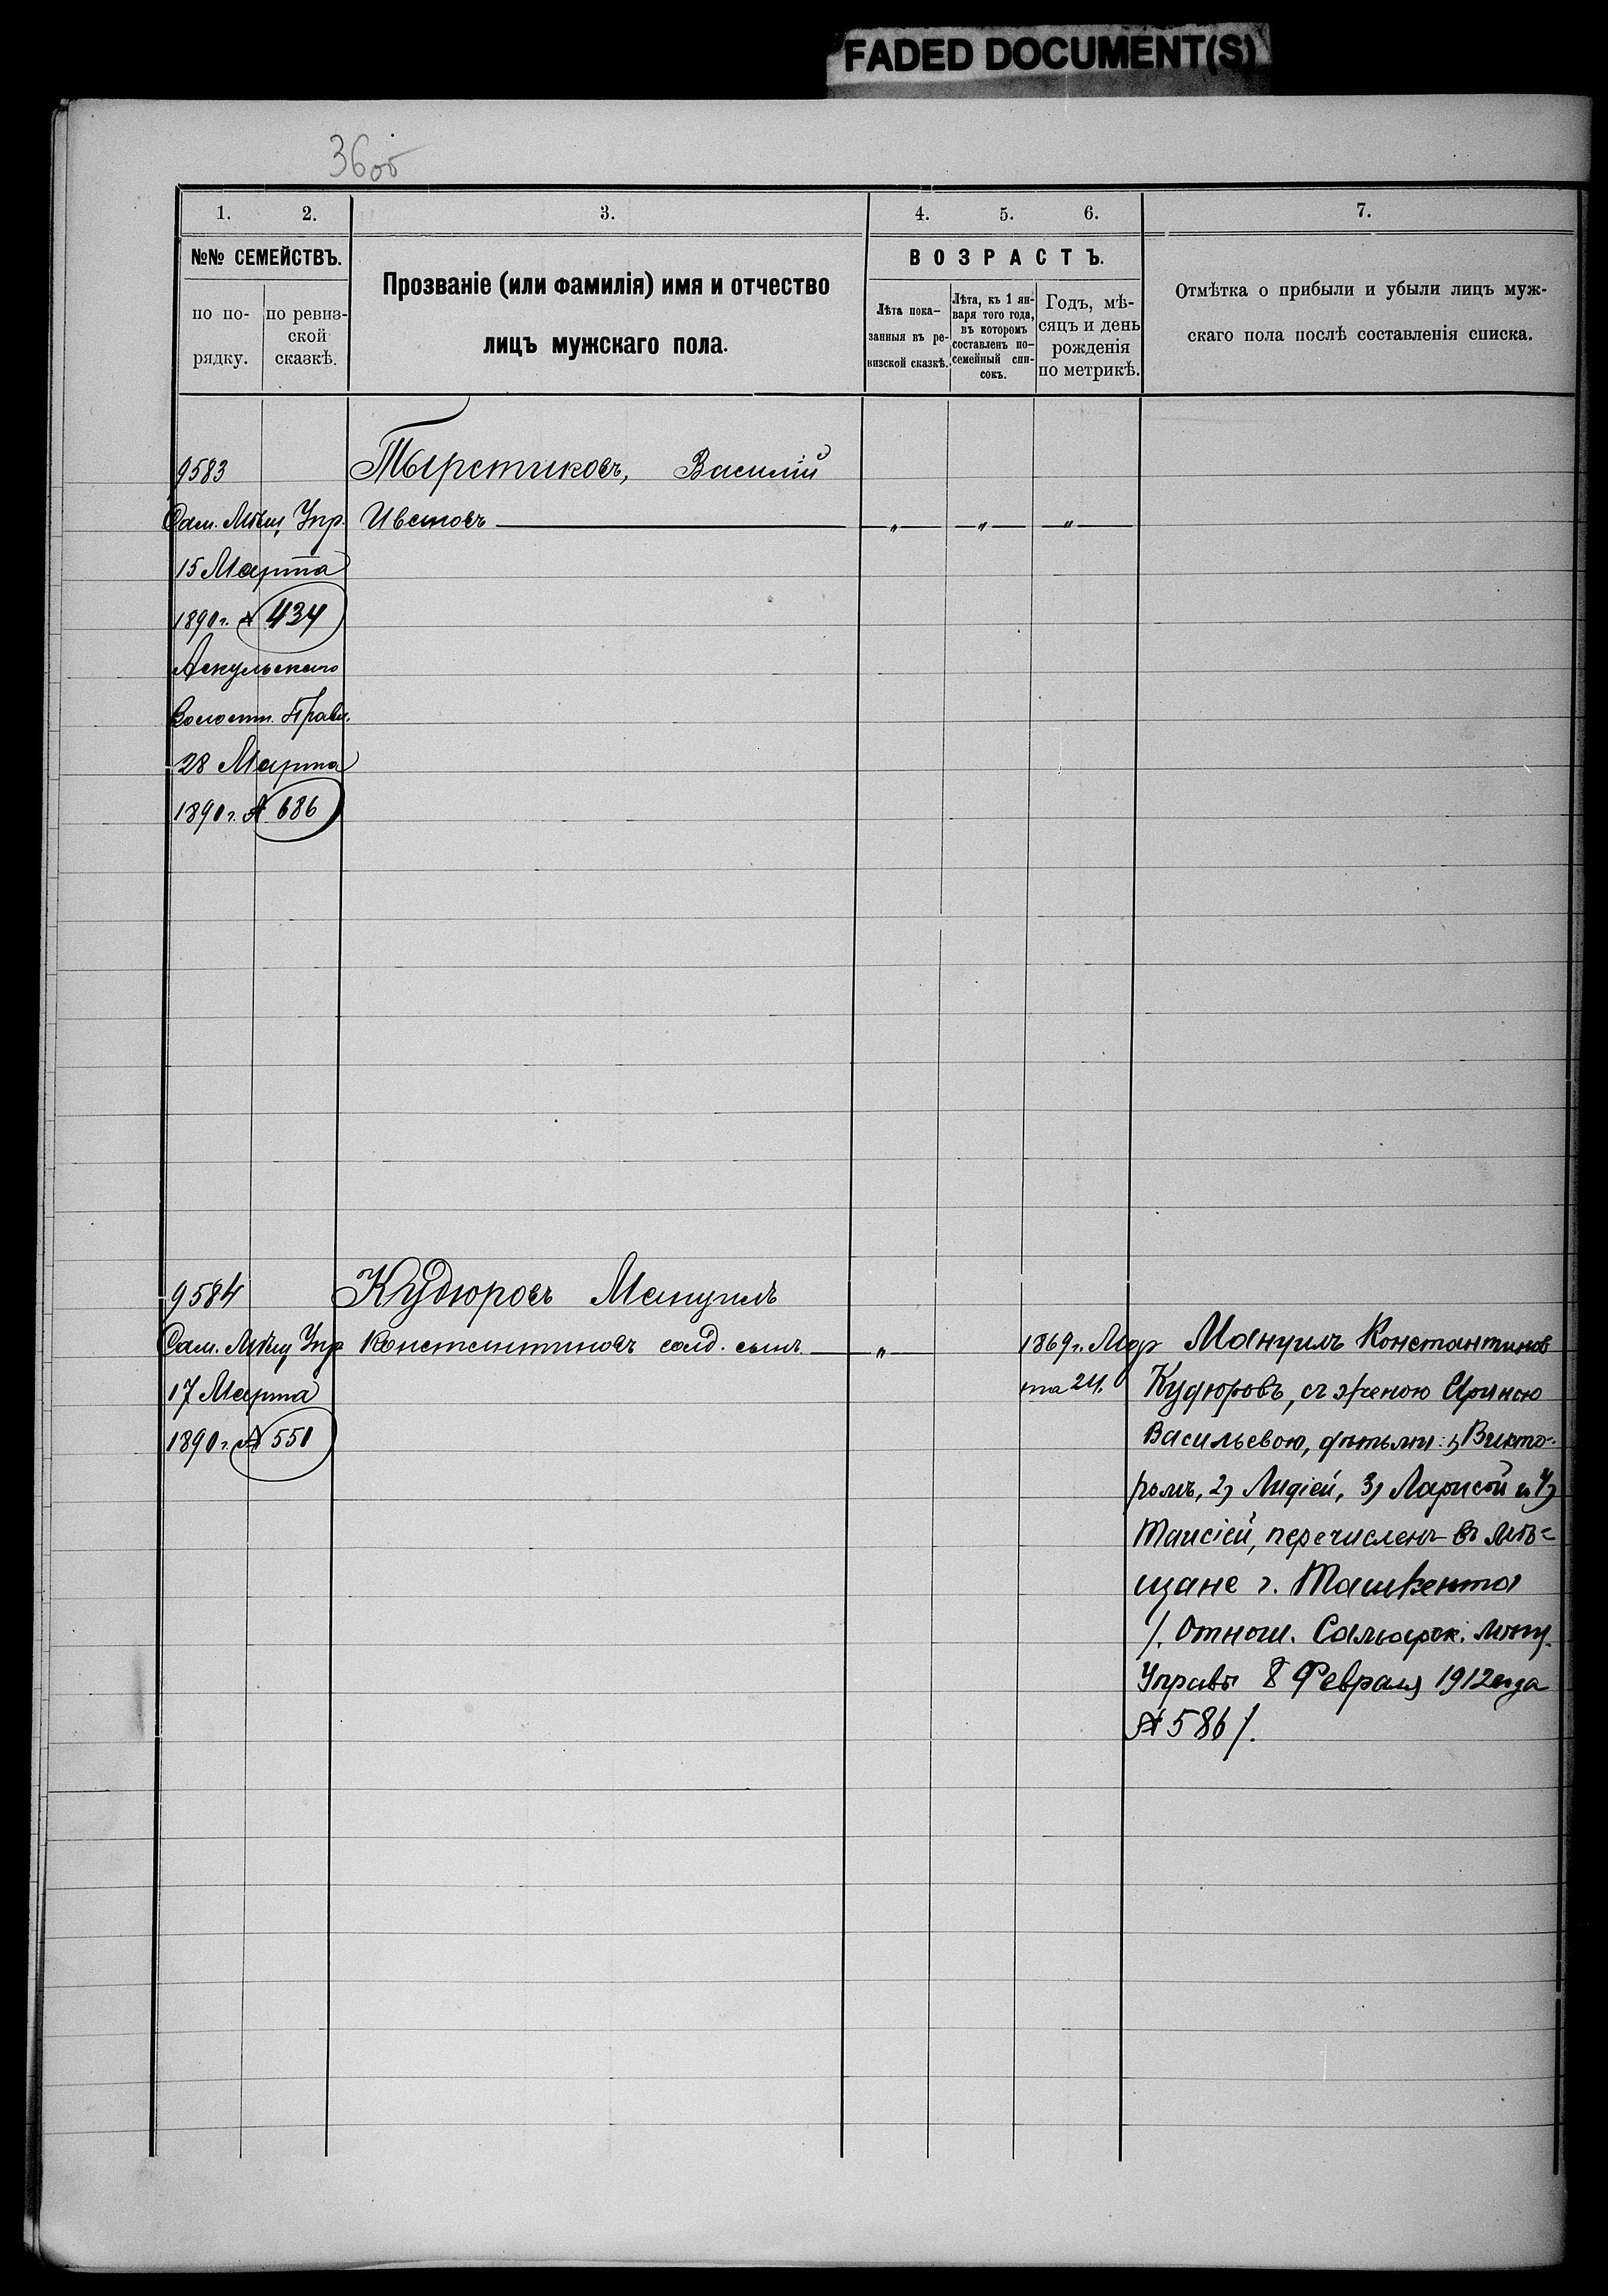 FADED DOCUMENT(S)
36об
1. 2. 3. 4. 5. 6. 7.
№№ СЕМЕЙСТВЪ.
по по-
рядку.
по ревиз-
ской
сказкѣ.
Прозваніе (или фамилія) имя и отчество
лицъ мужскаго пола.
ВОЗРАСТЪ.
Лѣта пока-
занныя въ ре-
визской сказкѣ.
Лѣта, къ 1 ян-
варя того года,
въ которомъ
составленъ по-
семейный спи-
сокъ.
Годъ, мѣ-
сяцъ и день
рожденія
по метрикѣ.
Отмѣтка о прибыли и убыли лицъ муж-
скаго пола послѣ составленія списка.
9583 Тырстиковъ, Василій
Сам. Мѣщ. Упр. Ивановъ — „ — „ — „ —
15 Марта
1890 г. № 434
Аскульскаго
Волостн. Правл.
28 Марта
1890 г. № 686
9584 Кудюровъ Мануилъ
Сам. Мѣщ. Упр. Константиновъ солд. сынъ. — „ — 1869 г. Мар
17 Марта та 24.
1890 г. № 551
Мануилъ Константинов
Кудюровъ, съ женою Ириною
Васильевою, дѣтьми: 1) Викто-
ромъ, 2) Лидіей, 3) Ларисой и 4)
Таисіей, перечисленъ въ мѣ-
щане г. Ташкента
/. Отнош. Самарск. мѣщ.
Управы 8 Февраля 1912 года
№ 586 /.